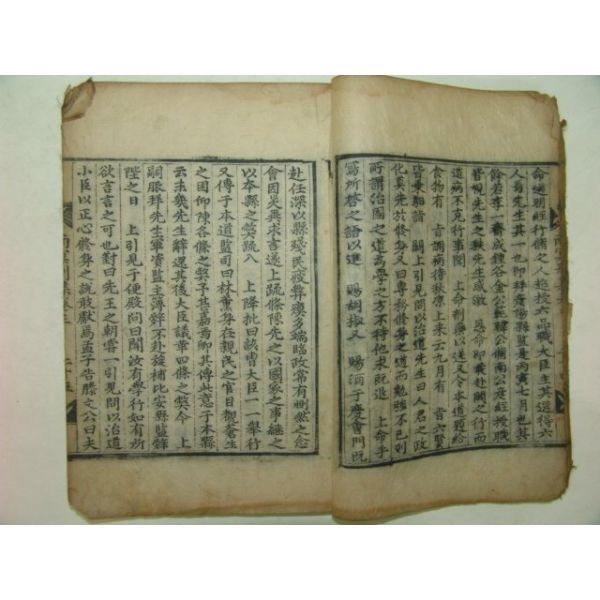 命通明經行修之人超授六品職大臣主其選得六
人焉先生其一也卽拜彥陽縣監是丙寅七月也其
餘若李一齋成鍾谷金公範韓公脩南公彥經授職
皆視先生之秩先生感激 恩命卽發赴闕之行而
道病不克行事聞 上命劑藥以送又令本道題給
食物有 旨調病待秋凉上來云九月有 旨六賢
皆乘馹詣 闕上引見問以治道先生曰人君之政
化莫先於修身又曰專務修身之道而勉强不已則
所謂治國之道爲學之方不待他求旣退 上命手
寫所啓之語以進 賜胡椒又 賜酒于慶會門旣
赴任深以縣殘民疲弊瘼多端臨政常有惻然之念
會因災異求言遂上疏條陳先之以國家之事繼之
以本縣之弊疏入 上降批曰該曹大臣一一擧行
又傳于本道監司曰林薰身在親民之官目覩蒼生
之困仰陳各條之弊予甚嘉焉卽其傳此意于本縣
云未幾先生辭還其後大臣議章四條之弊今 上
嗣服拜先生軍資監主簿辭不赴旋補比安縣監辭
陛之日 上引見于便殿問曰聞汝有學行如有所
欲言言之可也對曰先王之朝嘗一引見問以治道
小臣以正心修身之說敢獻焉孟子告滕文公曰夫